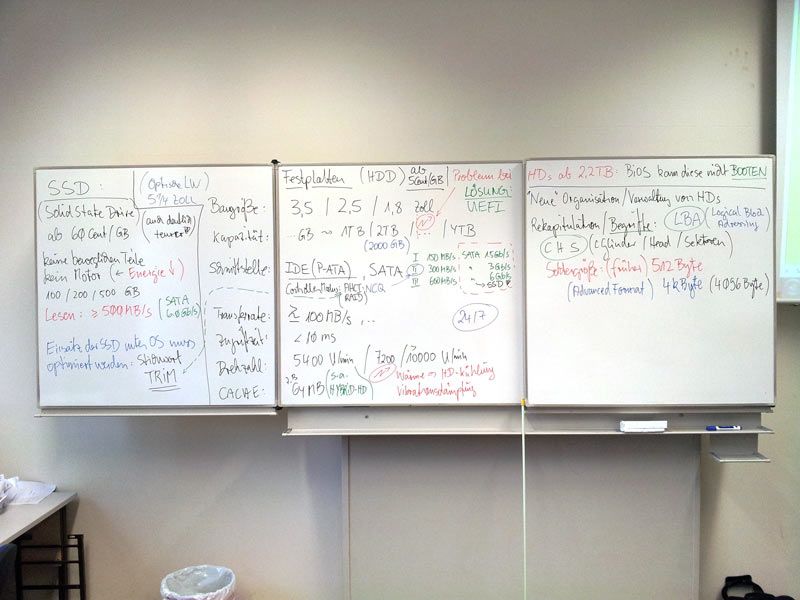 SSD:
(Optische LW)
5 1/4 ZOLL
(Solid State Drive)
ab 60 Cent/GB
(auch deutlich teurer)
keine beweglichen Teile
kein Motor (← Energie ↓)
100 / 200 / 500 GB
Lesen: ≥ 500 MB/s (SATA 6.0 Gb/s)
Einsatz der SSD unter OS muss
optimiert werden: Stichwort
TRIM
Baugröße:
Kapazität:
Schnittstelle:
Transferrate:
Zugriffszeit:
Drehzahl:
CACHE:
Festplatten (HDD) ab 5Cent/GB
Problem bei
LÖSUNG:
UEFI
3,5 / 2,5 / 1,8 Zoll
...GB ~ 1TB / 2TB / ... / 4TB
(2000 GB)
IDE (P-ATA), SATA
I 150 MB/s SATA 1.5 Gb/s
II 300 MB/s " 3 Gb/s
III 600 MB/s " 6 Gb/s
SSD
Controller Modus: AHCI NCQ
RAID
≥ 100 MB/s, ...
24/7
< 10 ms
5400 U/min / 7200 / 10000 U/min
64 MB (s.a. HYBRID-HD)
Wärme ⇒ HD-Kühlung
Vibrationsdämpfung
HDs ab 2,2TB: BIOS kann diese nicht BOOTEN
"Neue" Organisation/Verwaltung von HDs
Rekapitulation / Begriffe: LBA (Logical Block Adressing)
CHS (Cylinder / Head / Sektoren)
Sektorgröße: (früher) 512 Byte
(Advanced Format) 4 kByte (4096 Byte)